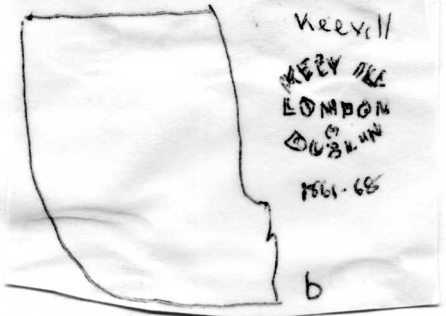 Keevill
KEEVILL
LONDON
&
DUBLIN
1861-68
b